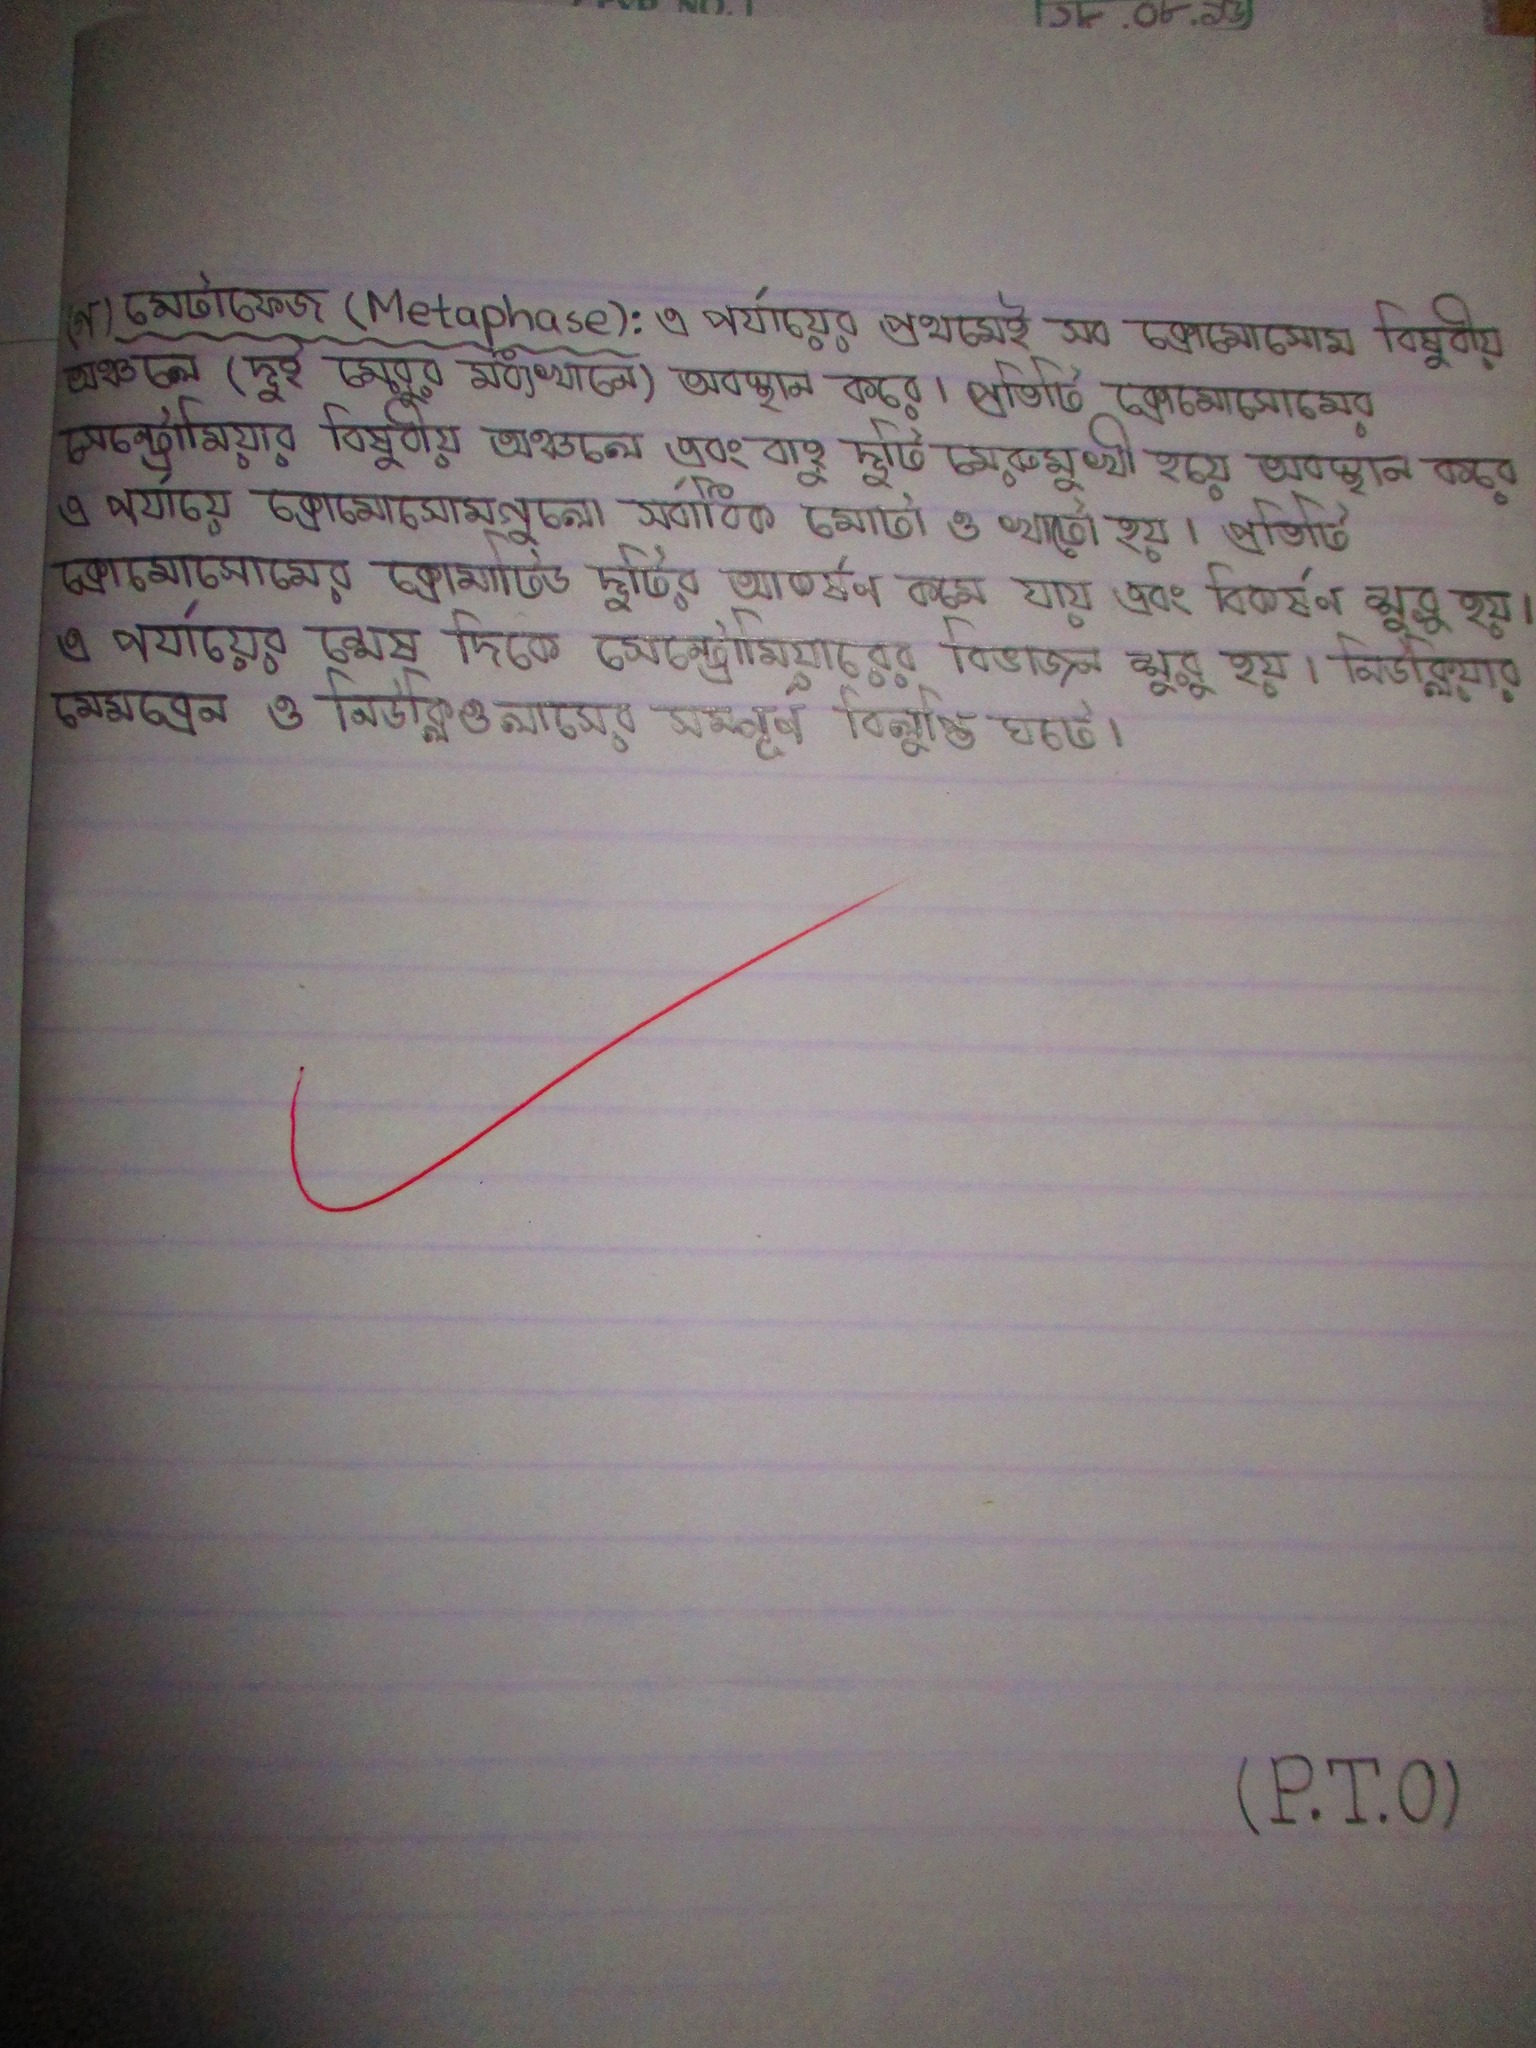 (গ) মেটাফেজ (Metaphase): এ পর্যায়ের প্রথমেই সব ক্রোমোসোম বিষুবীয়
অঞ্চলে (দুই মেরুর মধ্যখানে) অবস্থান করে। প্রতিটি ক্রোমোসোমের
সেন্ট্রোমিয়ার বিষুবীয় অঞ্চলে এবং বাহু দুটি মেরুমুখী হয়ে অবস্থান করে
এ পর্যায়ে ক্রোমোসোমগুলো সর্বাধিক মোটা ও খাটো হয়। প্রতিটি
ক্রোমোসোমের ক্রোমাটিড দুটির আকর্ষণ কমে যায় এবং বিকর্ষণ শুরু হয়।
এ পর্যায়ের শেষ দিকে সেন্ট্রোমিয়ারের বিভাজন শুরু হয়। নিউক্লিয়ার
মেমব্রেন ও নিউক্লিওলাসের সম্পূর্ণ বিলুপ্তি ঘটে।
(P.T.O)